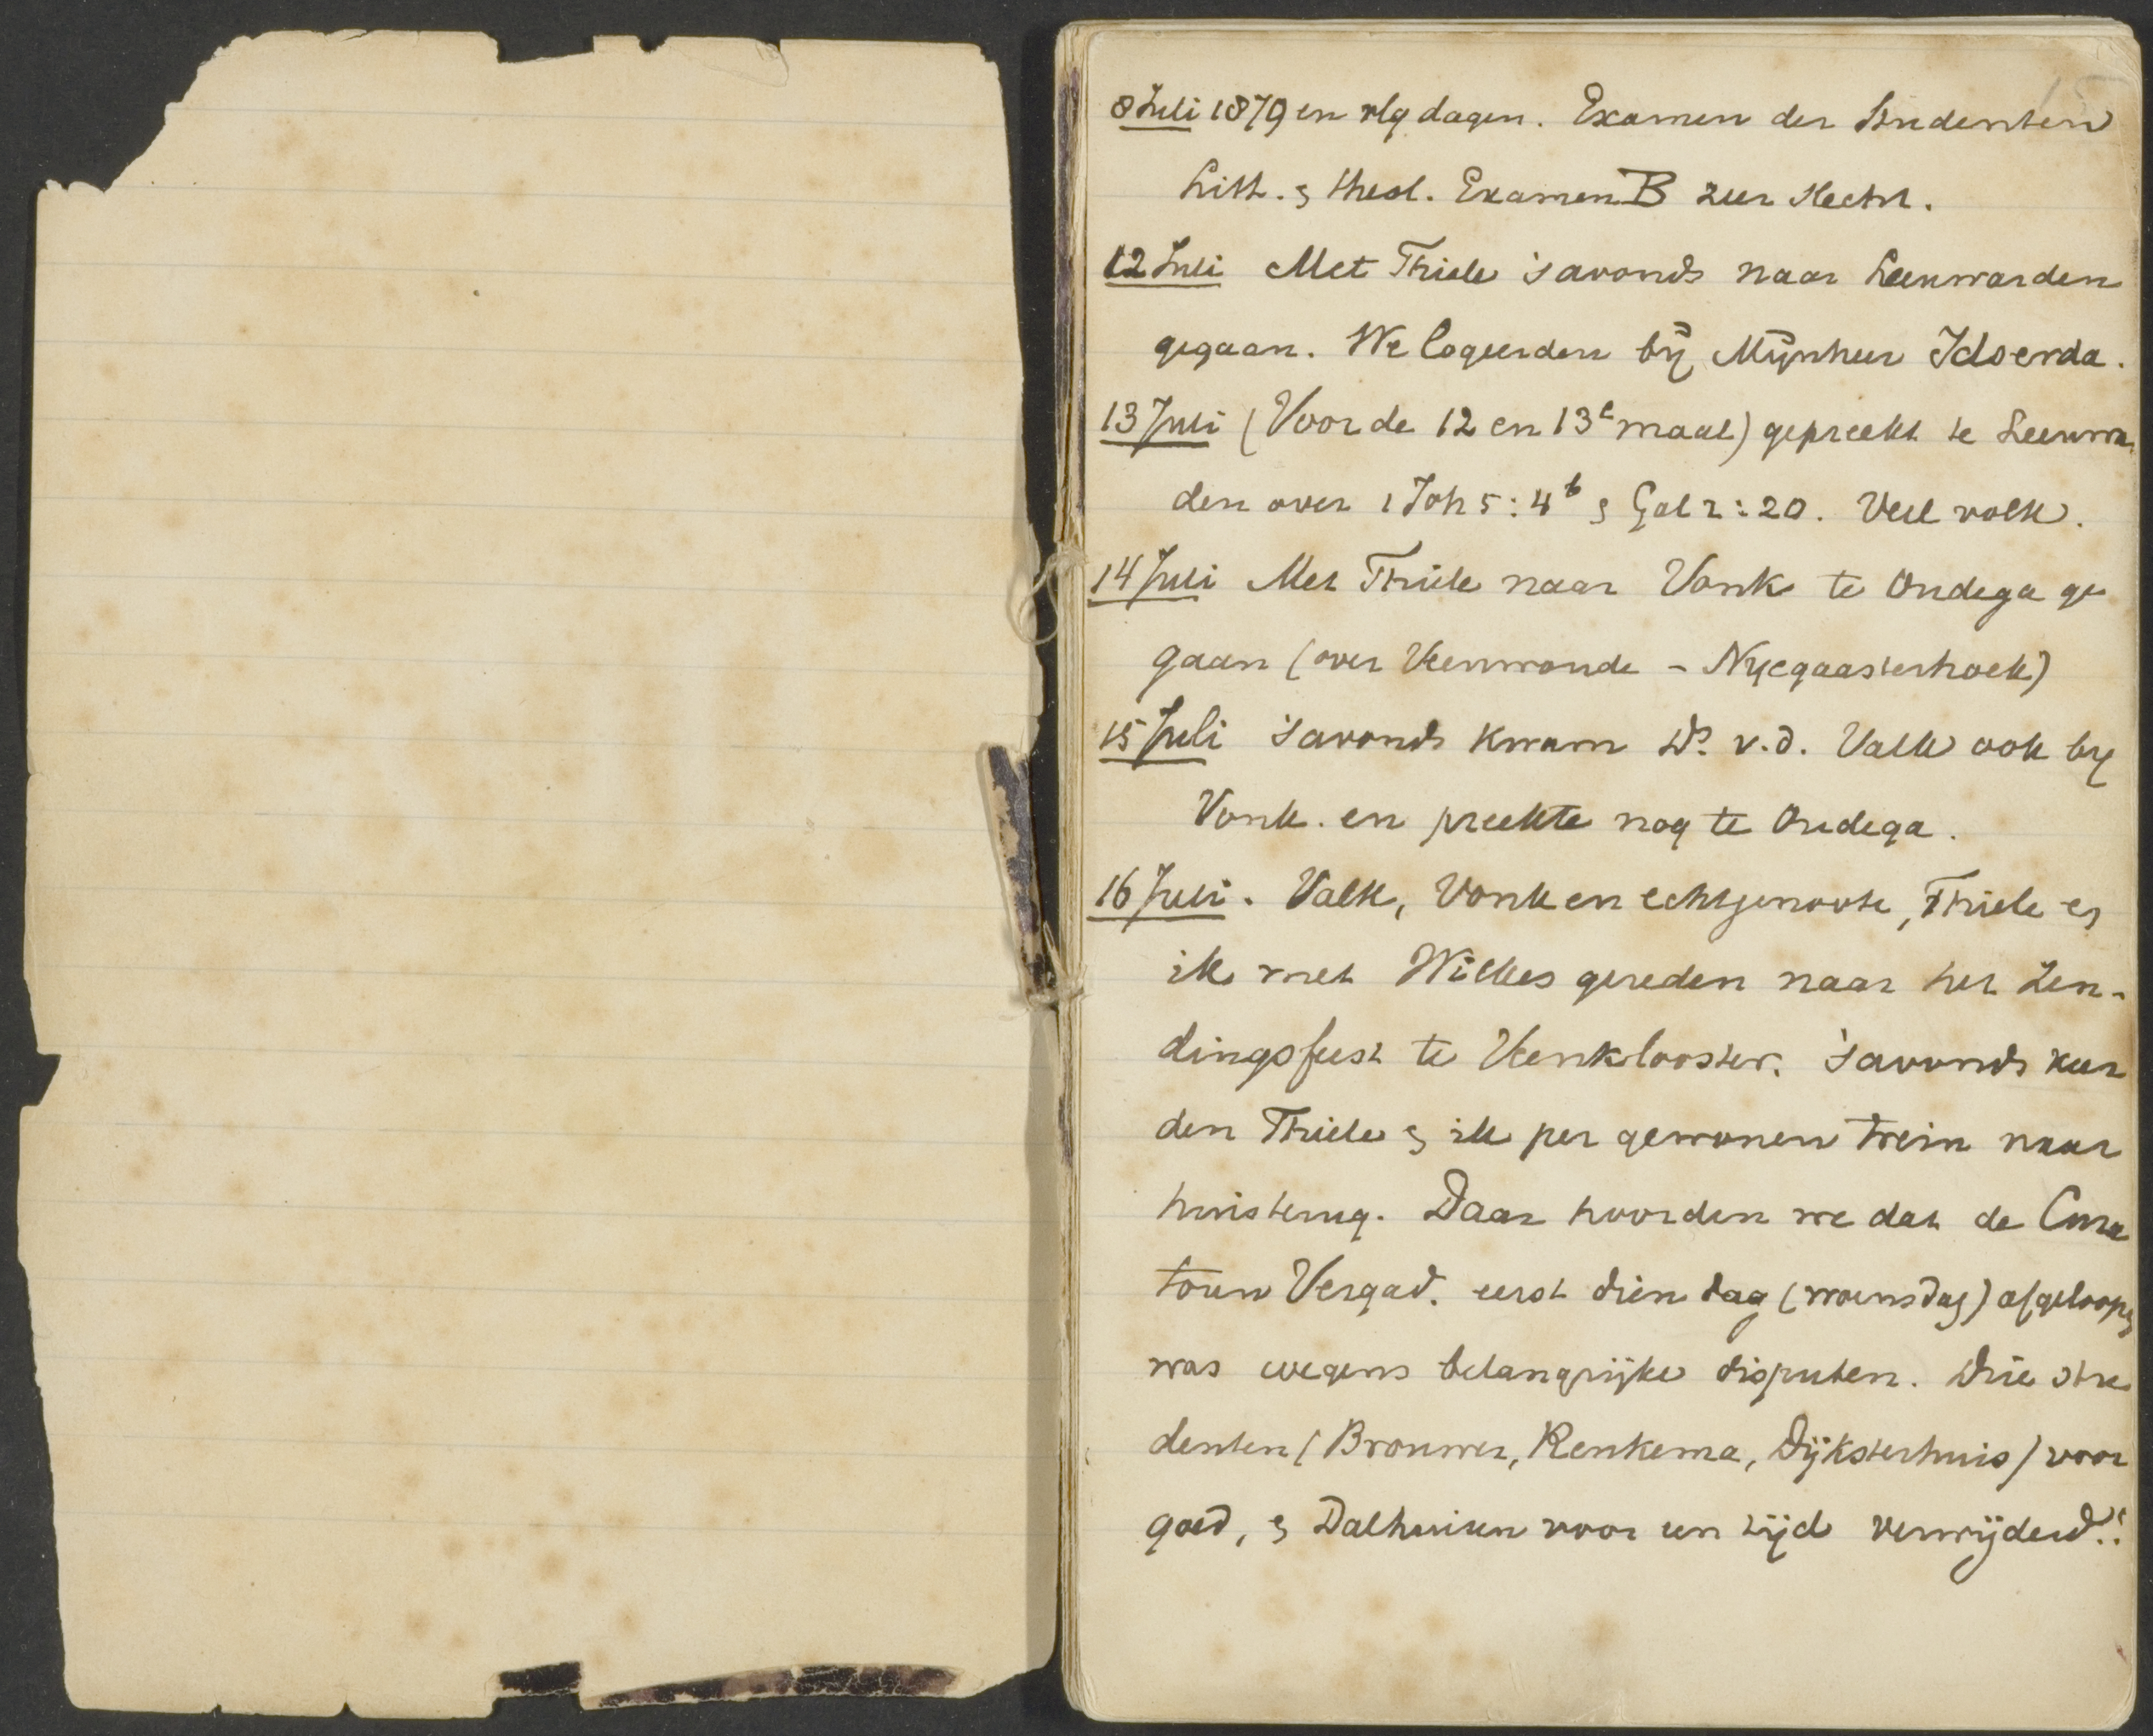 8 Juli 1879 en vlg dagen. Examen der Studenten
Litt. & theol. Examen B zeer slecht.
12 Juli Met Thiele 's avonds naar Leeuwarden
gegaan. We logeerden bij Mijnheer Idserda.
13 Juli (Voor de 12 en 13e maal) gepreekt te Leeuwar
den over 1 Joh 5:4b & Gal 2:20. Veel volk.
14 Juli Met Thiele naar Vonk te Oudega ge
gaan (over Veenwoude - Nijegaasterhoek)
15 Juli 's avonds kwam Ds. v.d. Valk ook bij
Vonk. en preekte nog te Oudega.
16 Juli. Valk, Vonk en echtgenoote, Thiele en
ik met Wilkes gereden naar het Zen-
dingsfeest te Veenklooster. 's avonds keer
den Thiele & ik per gewonen trein naar
huis terug. Daar hoorden we dat de Cura
toren Vergad. eerst dien dag (woensdag) afgeloopen
was wegens belangrijke disputen. Drie stu
denten (Brouwer, Renkema, Dijksterhuis) voor
goed, & Dalhuisen voor een tijd verwijderd!!